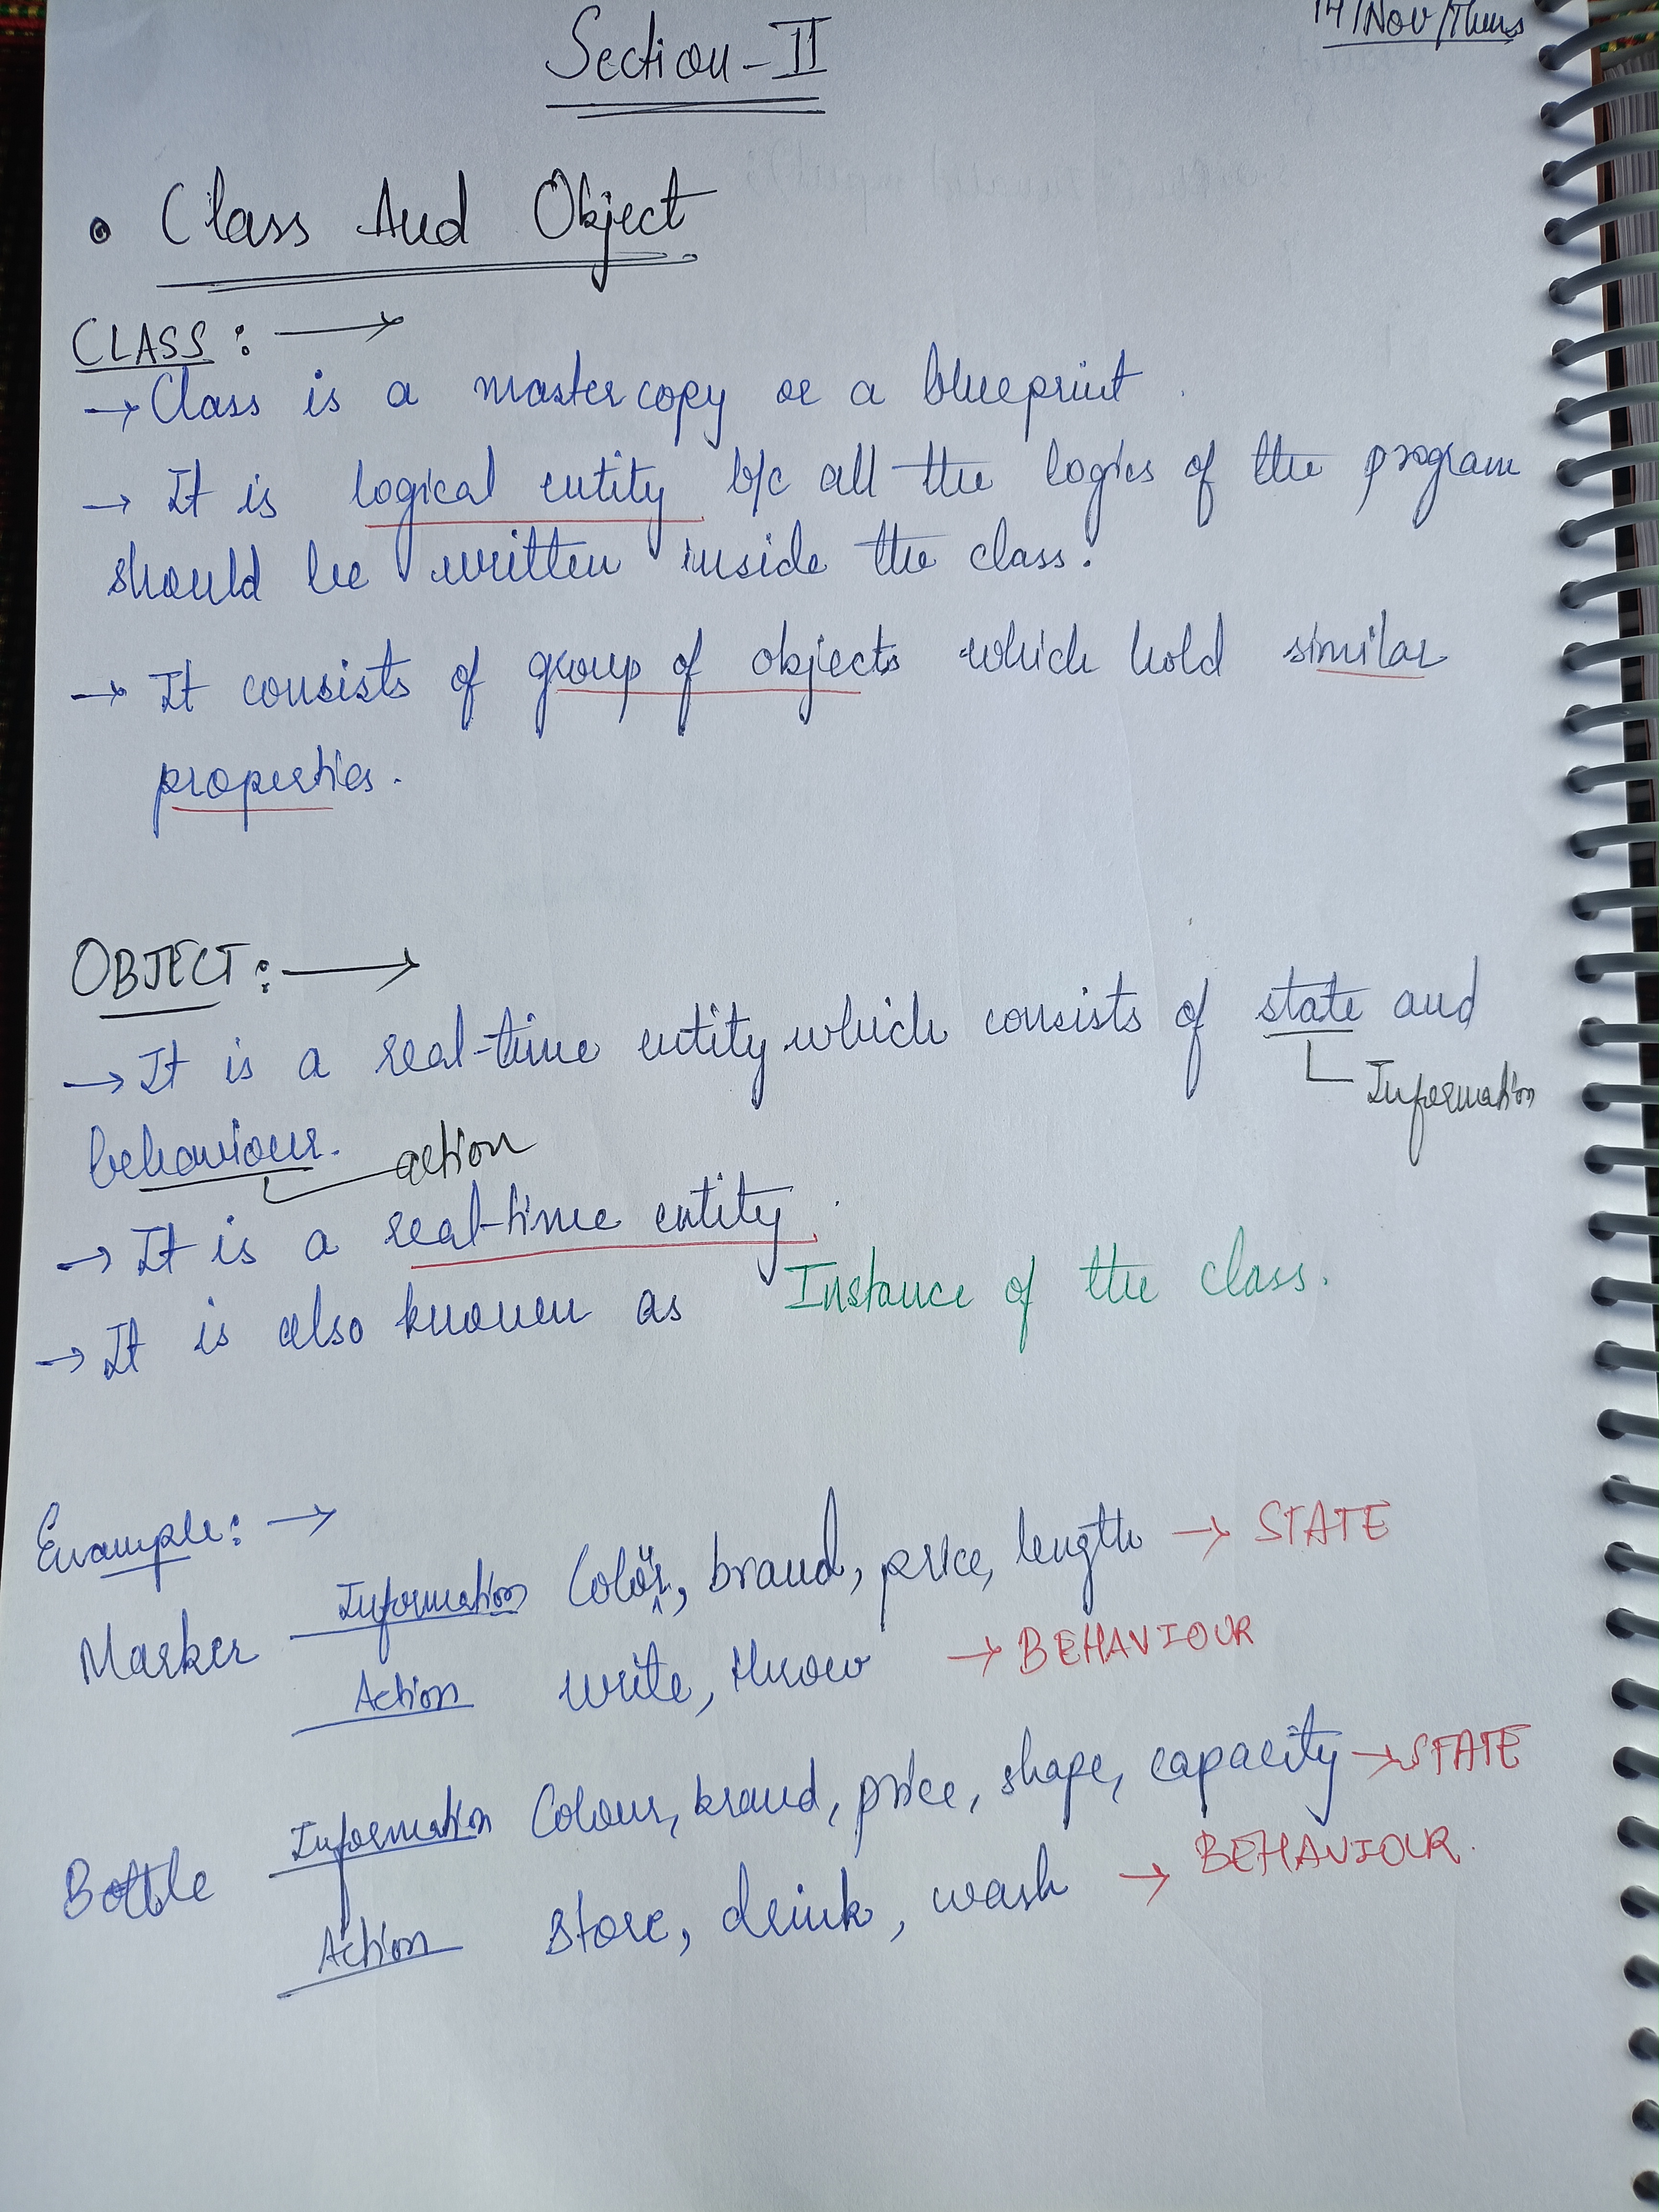 14/Nov/Thurs
Section-II
• Class And Object
CLASS: →
→ Class is a mastercopy or a blueprint.
→ It is logical entity b/c all the logics of the program
should be written inside the class.
→ It consists of group of objects which hold similar
properties.
OBJECT: →
→ It is a real-time entity which consists of state and
Information
behaviour. action
→ It is a real-time entity.
→ It is also known as Instance of the class.
Example: →
Information Colour, brand, price, length → STATE
Marker
Action write, throw → BEHAVIOUR
Information Colour, brand, price, shape, capacity → STATE
Bottle
Action store, drink, wash → BEHAVIOUR.